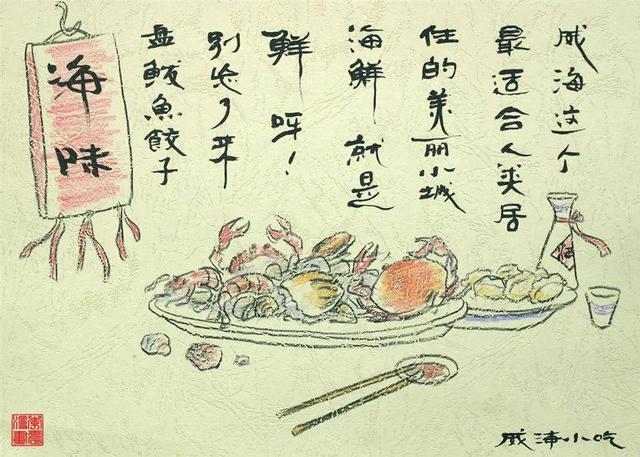 威海这个
最适合人类居
住的美丽小城
海鮮就是
鮮呀！
别忘了来
盘鮁魚餃子
海味
酒
威海小吃